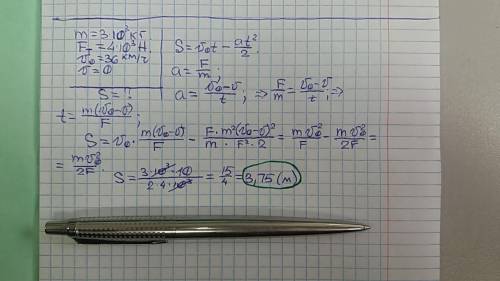 m = 3·10³ кг
F_T = 4·10³ Н.
v₀ = 36 км/ч
v = 0
S = ?
S = v₀t − at²/2.
a = F/m;
a = (v₀−v)/t; ⇒ F/m = (v₀−v)/t; ⇒
t = m(v₀−v)/F;
S = v₀ · m(v₀−v)/F − F·m²(v₀−v)²/(m·F²·2) = mv₀²/F − mv₀²/2F =
= mv₀²/2F.
S = 3·10³·10/(2·4·10³) = 15/4 = 3,75 (м)